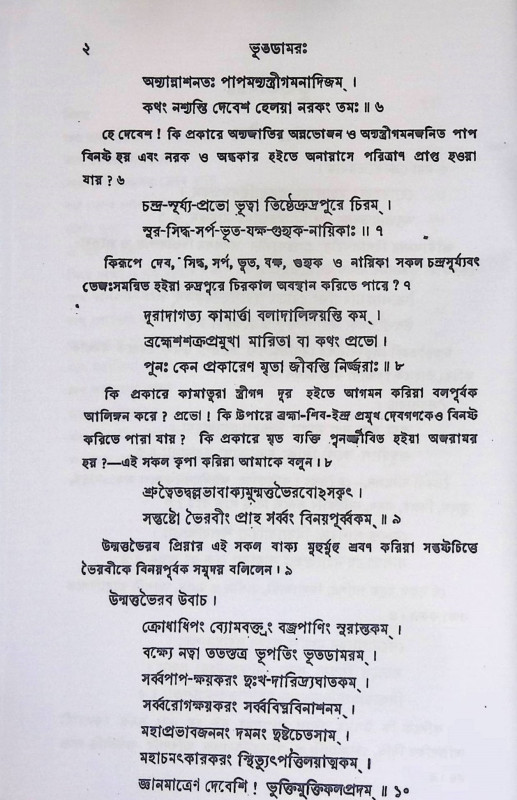 ২
ভূতডামরঃ
অন্যান্নাশনতঃ পাপমন্যস্ত্রীগমনাদিজম্ ।
কথং নশ্যন্তি দেবেশ হেলয়া নরকং তমঃ॥ ৬
হে দেবেশ ! কি প্রকারে অন্যজাতির অন্নভোজন ও অন্যস্ত্রীগমনজনিত পাপ
বিনষ্ট হয় এবং নরক ও অন্ধকার হইতে অনায়াসে পরিত্রাণ প্রাপ্ত হওয়া
যায় ? ৬
চন্দ্র-সূর্য্য-প্রভো ভূত্বা তিষ্ঠেদ্রুদ্রপুরে চিরম্ ।
সুর-সিদ্ধ-সর্প-ভূত-যক্ষ-গুহ্যক-নায়িকাঃ॥ ৭
কিরূপে দেব, সিদ্ধ, সর্প, ভূত, যক্ষ, গুহ্যক ও নায়িকা সকল চন্দ্রসূর্য্যবৎ
তেজঃসমন্বিত হইয়া রুদ্রপুরে চিরকাল অবস্থান করিতে পারে ? ৭
দূরাদাগত্য কামার্ত্তা বলাদালিঙ্গয়ন্তি কম্ ।
ব্রহ্মেশশক্রপ্রমুখা মারিতা বা কথং প্রভো ।
পুনঃ কেন প্রকারেণ মৃতা জীবন্তি নির্জ্জরাঃ॥ ৮
কি প্রকারে কামাতুরা স্ত্রীগণ দূর হইতে আগমন করিয়া বলপূর্ব্বক
আলিঙ্গন করে ? প্রভো ! কি উপায়ে ব্রহ্মা-শিব-ইন্দ্র প্রমুখ দেবগণকেও বিনষ্ট
করিতে পারা যায় ? কি প্রকারে মৃত ব্যক্তি পুনর্জ্জীবিত হইয়া অজরামর
হয় ?—এই সকল কৃপা করিয়া আমাকে বলুন । ৮
শ্রুত্বৈতদ্বল্লভাবাক্যমুন্মত্তভৈরবোঽসকৃৎ ।
সন্তুষ্টো ভৈরবীং প্রাহ সর্ব্বং বিনয়পূর্ব্বকম্ ॥ ৯
উন্মত্তভৈরব প্রিয়ার এই সকল বাক্য মুহুর্মুহু শ্রবণ করিয়া সন্তষ্টচিত্তে
ভৈরবীকে বিনয়পূর্ব্বক সমুদয় বলিলেন । ৯
উন্মত্তভৈরব উবাচ ।
ক্রোধাধিপং ব্যোমবক্ত্রং বজ্রপাণিং সুরান্তকম্ ।
বক্ষ্যে নত্বা ততস্তত্র ভূপতিং ভূতডামরম্ ।
সর্ব্বপাপ-ক্ষয়করং দুঃখ-দারিদ্র্যঘাতকম্ ।
সর্ব্বরোগক্ষয়করং সর্ব্ববিঘ্নবিনাশনম্ ।
মহাপ্রভাবজননং দমনং দুষ্টচেতসাম্ ।
মহাচমৎকারকরং স্থিত্যুৎপত্তিলয়াত্মকম্ ।
জ্ঞানমাত্রেণ দেবেশি ! ভুক্তিমুক্তিফলপ্রদম্ ॥ ১০